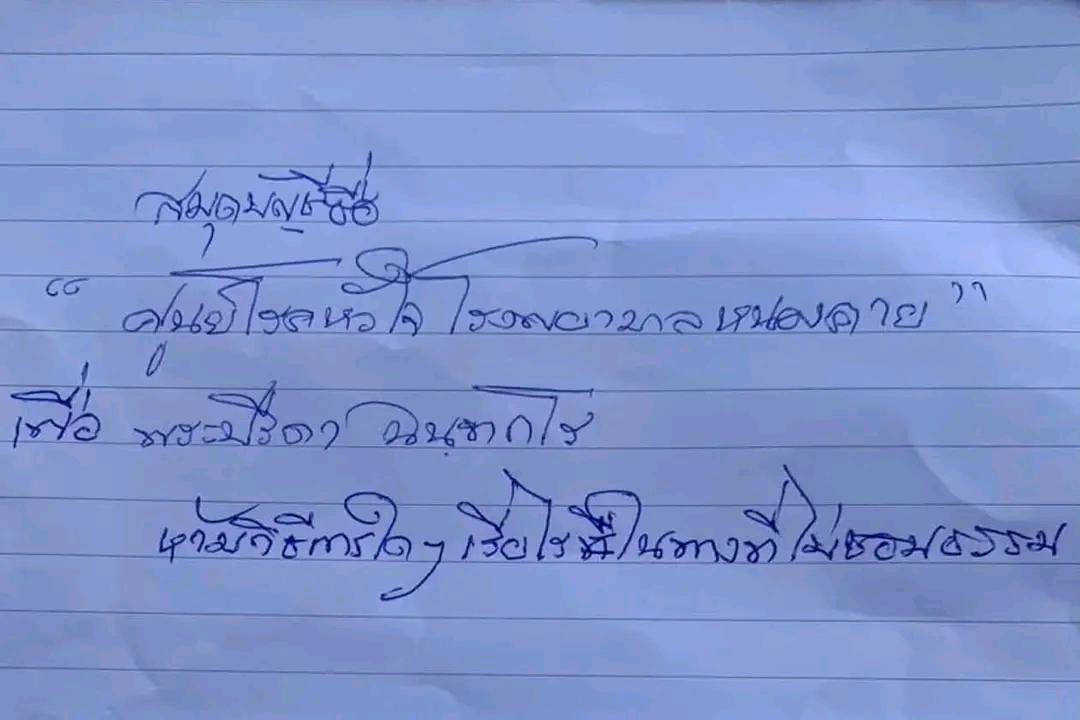 สมุดบัญชีชื่อ
“ ศูนย์โรคหัวใจ โรงพยาบาลหนองคาย ”
เพื่อ พระปรีดา ฉนฺทกโร
ห้ามวิธีการใดๆ เรี่ยไร ในทางที่ไม่ชอบธรรม